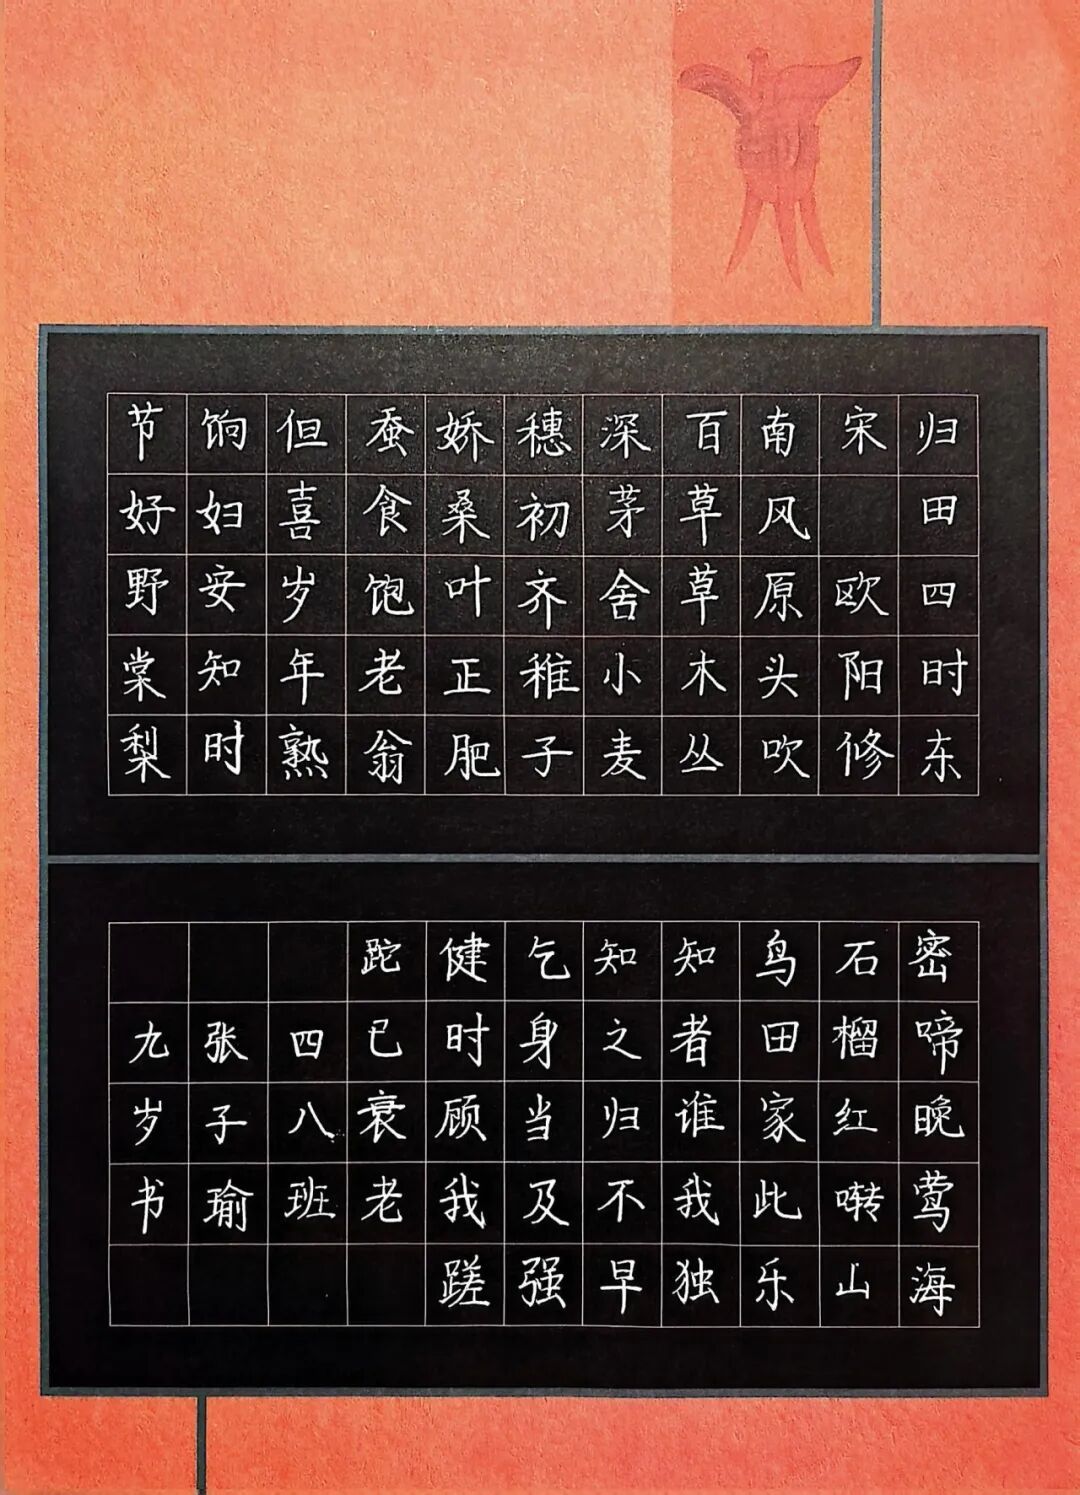 归田四时东
宋 欧阳修
南风原头吹
百草草木丛
深茅舍小麦
穗初齐稚子
娇桑叶正肥
蚕食饱老翁
但喜岁年熟
饷妇安知时
节好野棠梨
密啼晚莺海
石榴红啭山
鸟田家此乐
知者谁我独
知之归不早
乞身当及强
健时顾我蹉
跎已衰老
四八班
张子瑜
九岁书